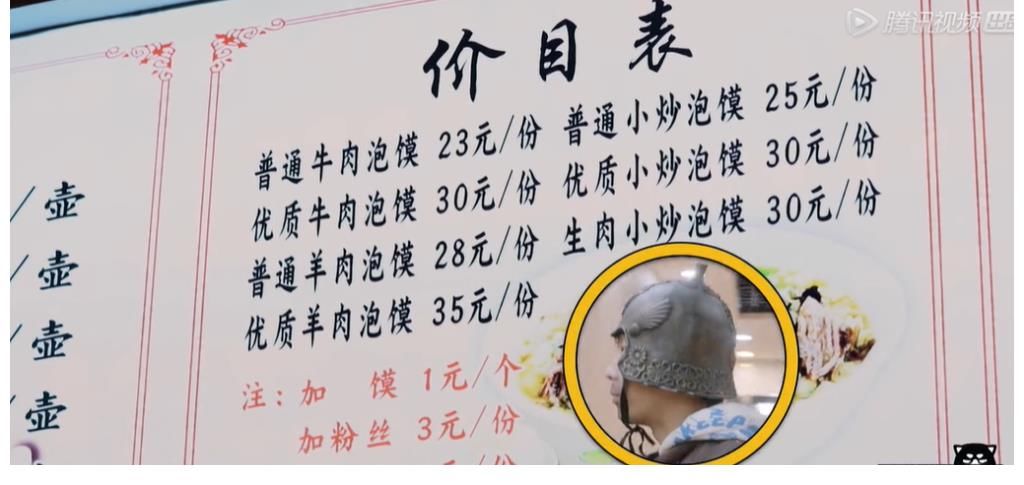 腾讯视频
价目表
普通牛肉泡馍 23元/份
优质牛肉泡馍 30元/份
普通羊肉泡馍 28元/份
优质羊肉泡馍 35元/份
普通小炒泡馍 25元/份
优质小炒泡馍 30元/份
生肉小炒泡馍 30元/份
注：加 馍 1元/个
加粉丝 3元/份
/壶
/壶
/壶
/壶